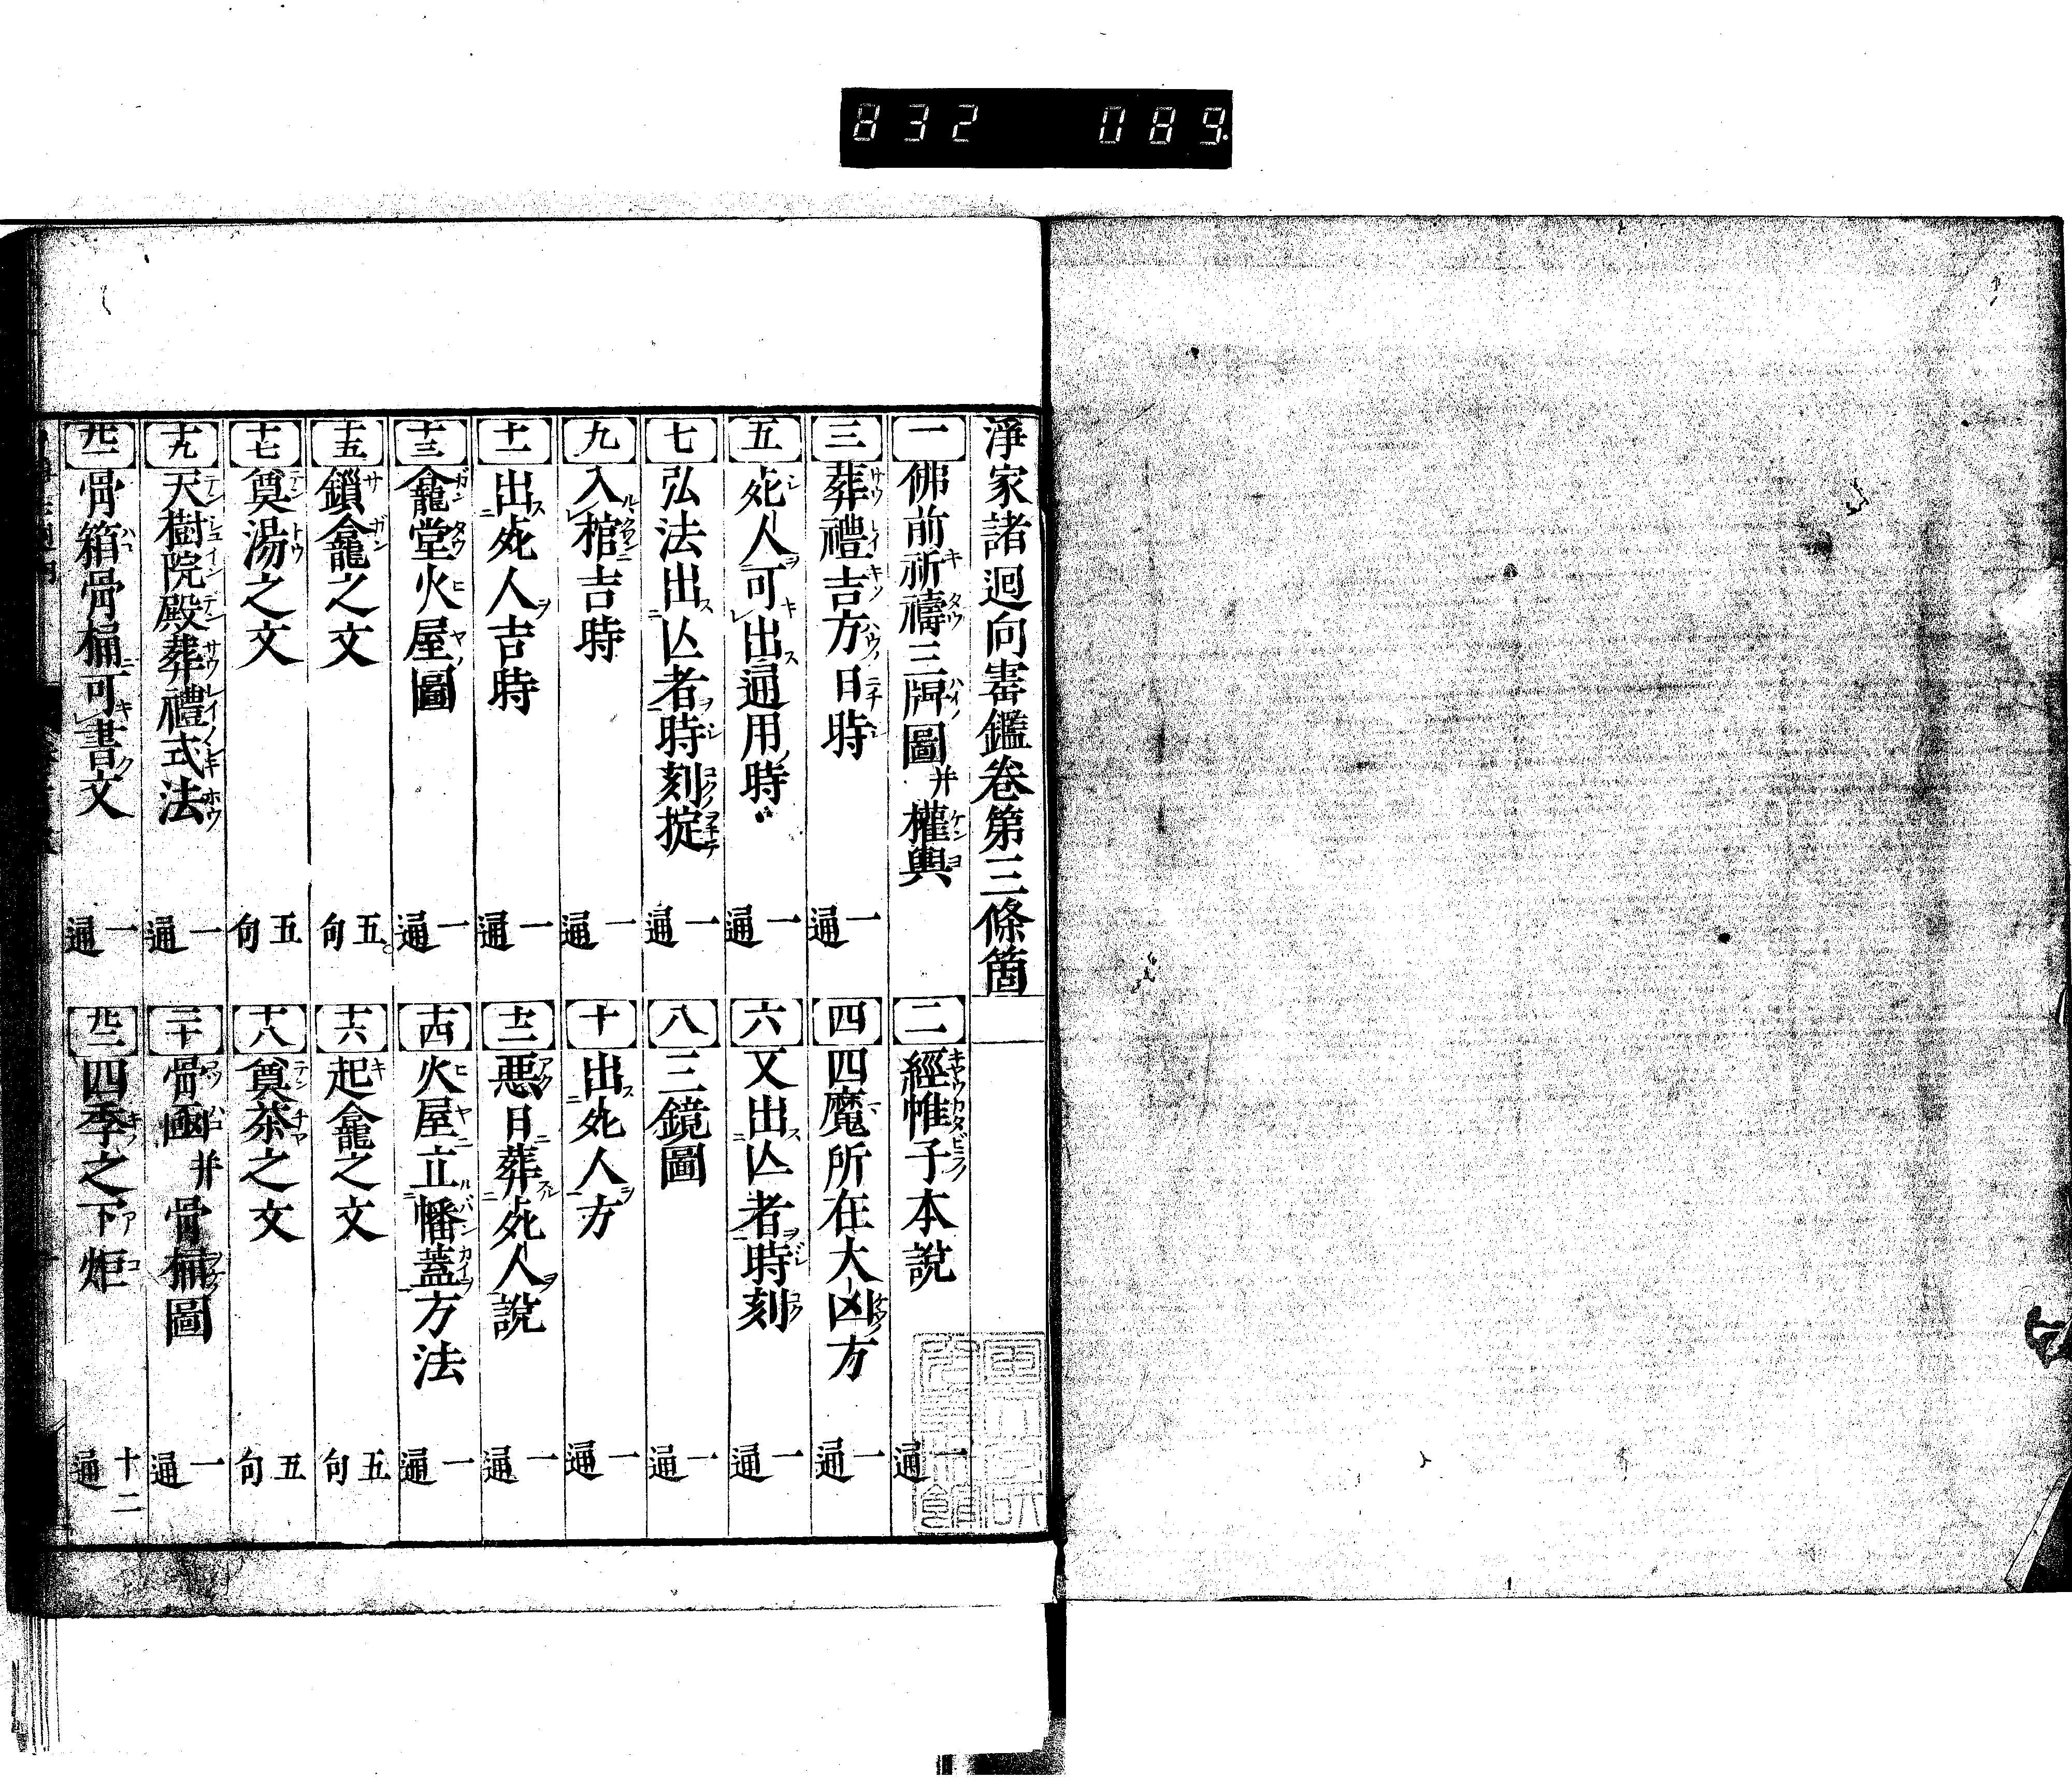 832 089
淨家諸迴向寳鑑卷第三條箇
一 佛前祈禱三牌圖并權輿
二 經帷子本說 一通
三 葬禮吉方日時 一通
四 四魔所在大凶方 一通
五 死人可出通用時 一通
六 又出亾者時刻 一通
七 弘法出亾者時刻掟 一通
八 三鏡圖 一通
九 入棺吉時 一通
十 出死人方 一通
十一 出死人吉時 一通
十二 惡日葬死人說 一通
十三 龕堂火屋圖 一通
十四 火屋立幡蓋方法 一通
十五 鎻龕之文 五句
十六 起龕之文 五句
十七 奠湯之文 五句
十八 奠茶之文 五句
十九 天樹院殿葬禮式法 一通
二十 骨凾并骨桶圖 一通
廿一 骨箱骨桶可書文 一通
廿二 四季之下炬 十二通